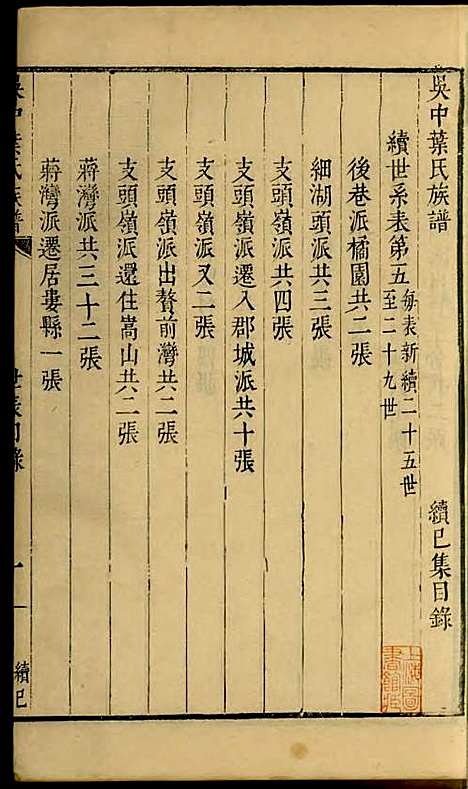 吳中葉氏族譜
續巳集目錄
續世系表第五
每表新續二十五世
至二十九世
後巷派橘園共二張
細湖頭派共三張
支頭嶺派共四張
支頭嶺派遷入郡城派共十張
支頭嶺派又二張
支頭嶺派出贅前灣共二張
支頭嶺派還住嵩山共二張
蔣灣派共三十二張
蔣灣派遷居婁縣一張
吳中葉氏族譜
世表目錄
一
續巳
上海圖書館藏